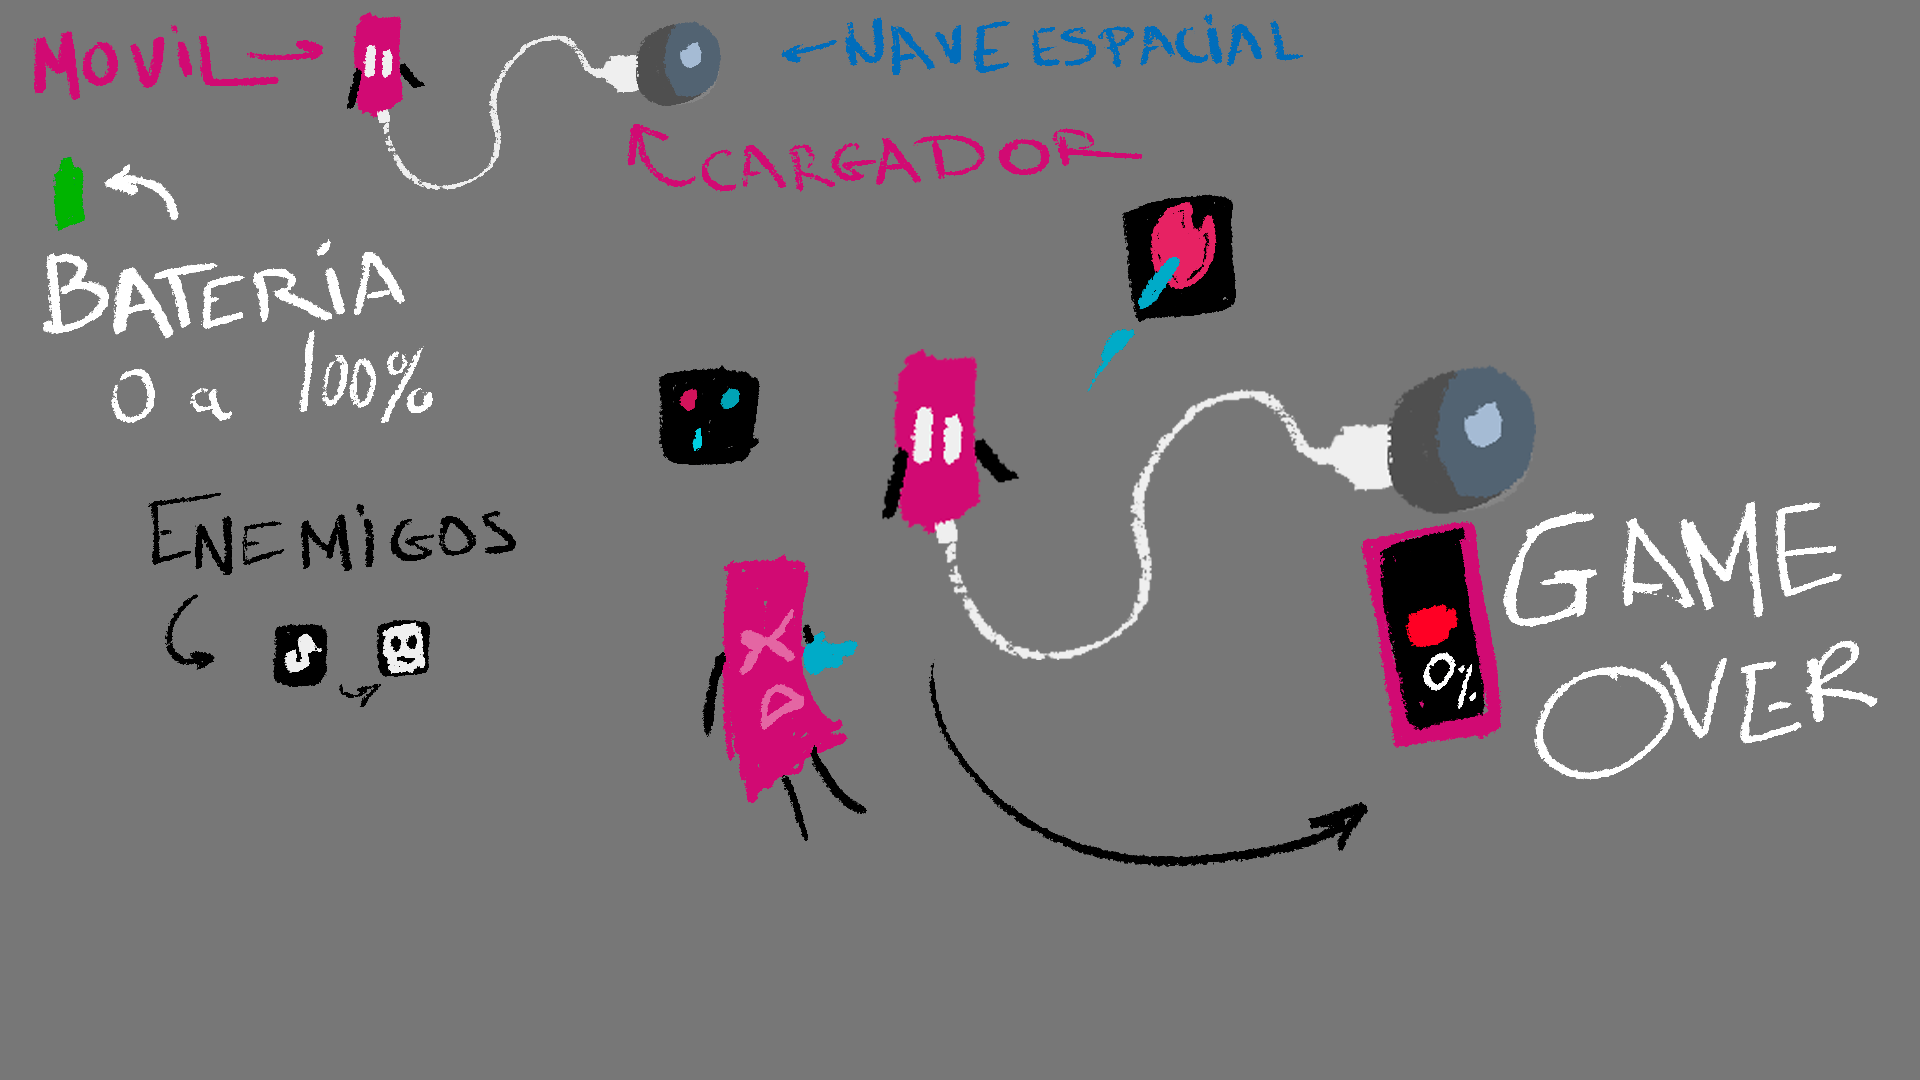 MOVIL
NAVE ESPACIAL
CARGADOR
BATERIA
0 a 100%
ENEMIGOS
GAME
OVER
0%